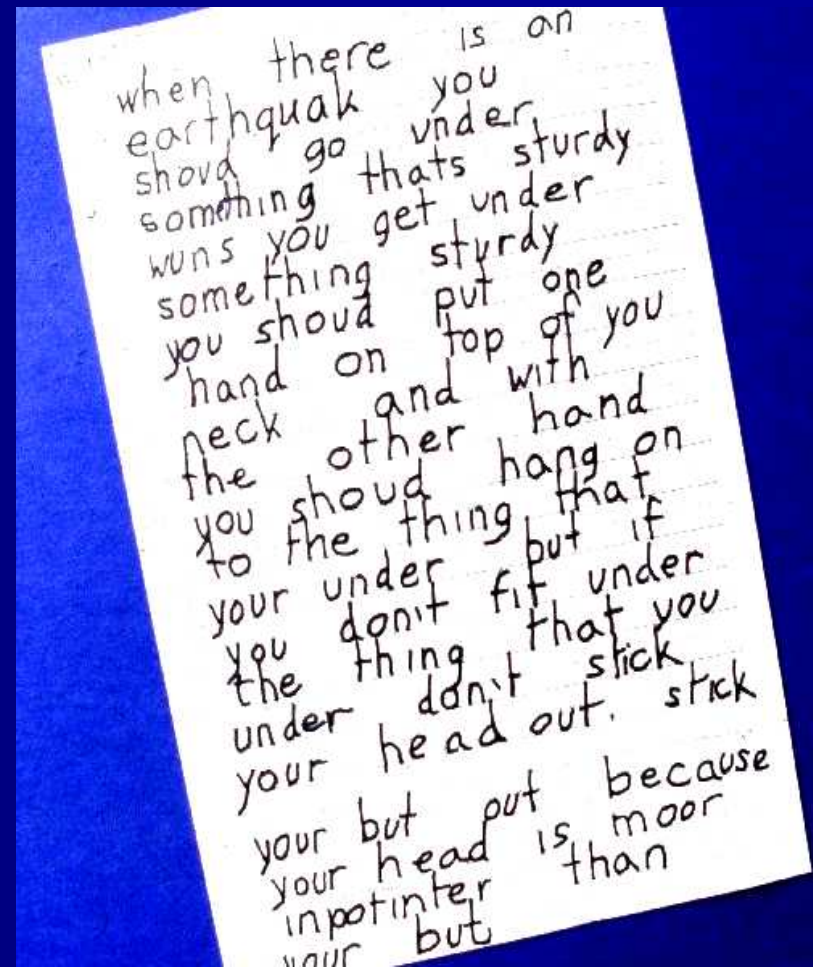 when there is an
earthquak you
shoud go under
something thats sturdy
wuns you get under
something sturdy
you shoud put one
hand on top of you
neck and with
the other hand
you shoud hang on
to the thing that
your under but if
you don't fit under
the thing that you
under don't stick
your head out. stick
your but out because
your head is moor
inpotinter than
your but